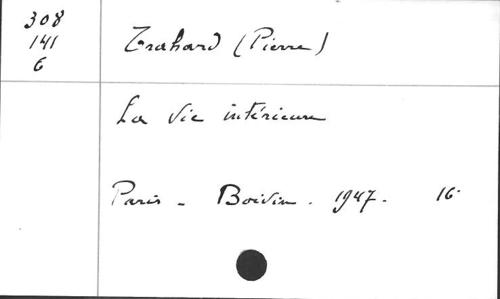 308
141
6
Trahard (Pierre)
La Vie intérieure
Paris - Boivin. 1947. 16°